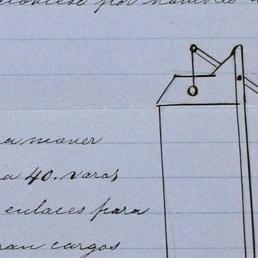 por
a mover
a 40. varas
enlaces para
ran cargos